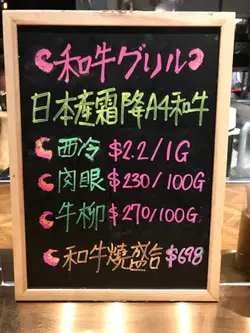 和牛グリル
日本產霜降A4和牛
西冷 $2.2/1G
肉眼 $230/100G
牛柳 $270/100G
和牛燒盛合 $698